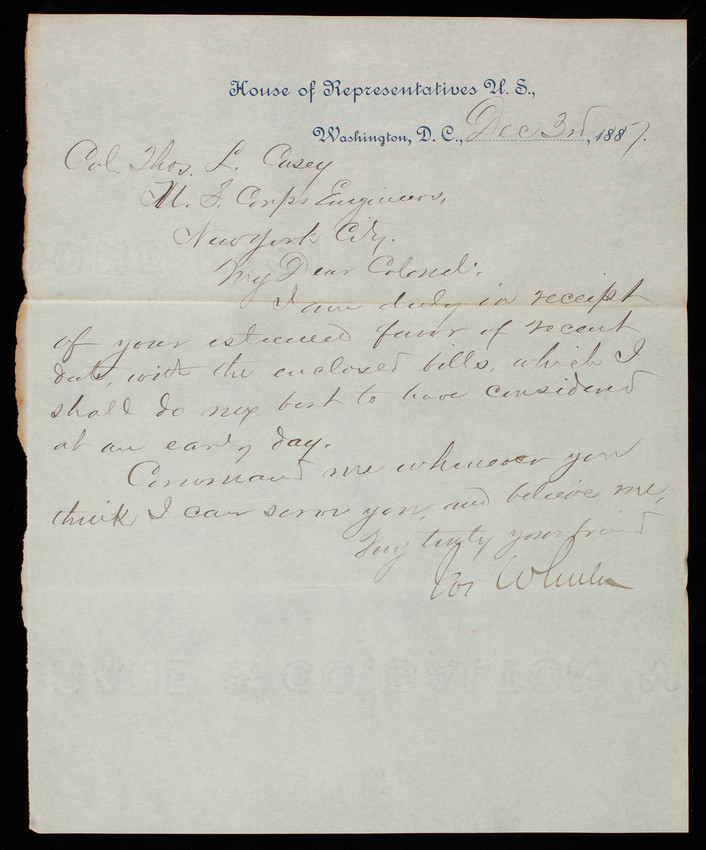 House of Representatives U. S.,
Washington, D. C., Dec 3rd, 1887.
Col. Thos. L. Casey
U. S. Corps Engineers,
New York City.
My Dear Colonel:
I am duly in receipt
of your esteemed favor of recent
date, with the enclosed bills, which I
shall do my best to have considered
at an early day.
Command me whenever you
think I can serve you, and believe me,
Very truly your friend
Jos Wheeler